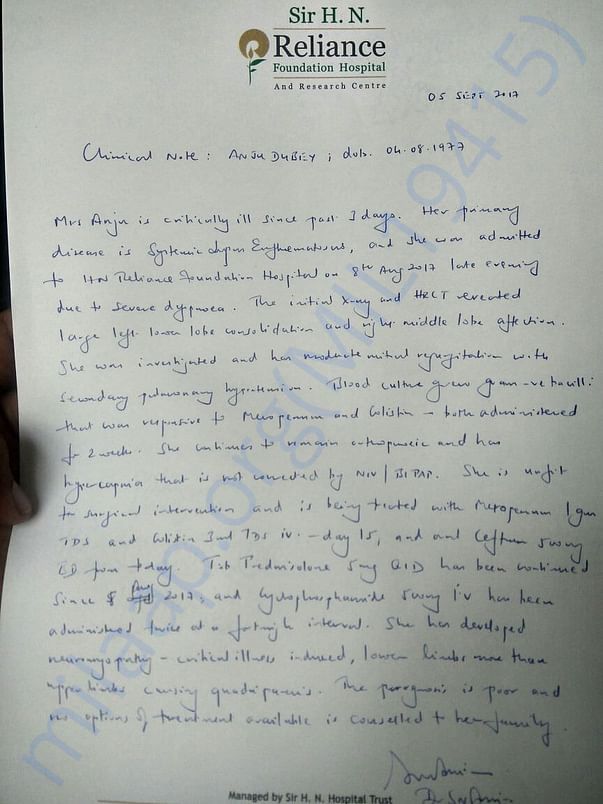 Sir H. N.
Reliance
Foundation Hospital
And Research Centre
05 SEPT 2017
Clinical Note : ANJU DUBEY ; dob. 04.08.1977
Mrs Anju is critically ill since past 3 days. Her primary
disease is Systemic Lupus Erythematosus, and she was admitted
to HN Reliance Foundation Hospital on 8th Aug 2017 late evening
due to severe dyspnoea. The initial X-ray and HRCT revealed
large left lower lobe consolidation and right middle lobe affection.
She was investigated and has moderate mitral regurgitation with
secondary pulmonary hypertension. Blood culture grew gram -ve bacilli
that was responsive to Meropenum and Colistin – both administered
for 2 weeks. She continues to remain orthopnoeic and has
hypercapnia that is not corrected by NIV / BIPAP. She is unfit
for surgical intervention and is being treated with Meropenum 1gm
TDS and Colistin 3ml TDS iv. – day 15, and oral Ceftum 500mg
from today. Tab Prednisolone 5mg QID has been continued
since 8 Aug 2017, and Cyclophosphamide 500mg I.V has been
administered twice at a fortnight interval. She has developed
neuromyopathy – critical illness induced, lower limbs more than
upper limbs causing quadriparesis. The prognosis is poor and
no options of treatment available is counselled to her family.
Managed by Sir H. N. Hospital Trust
milaap.org(MIL119415)